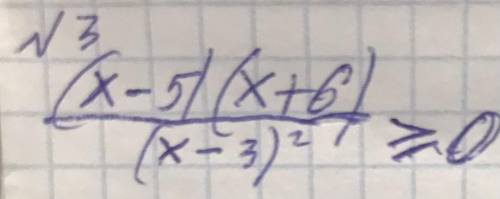 №3
(x-5)(x+6)
(x-3)² ≥ 0